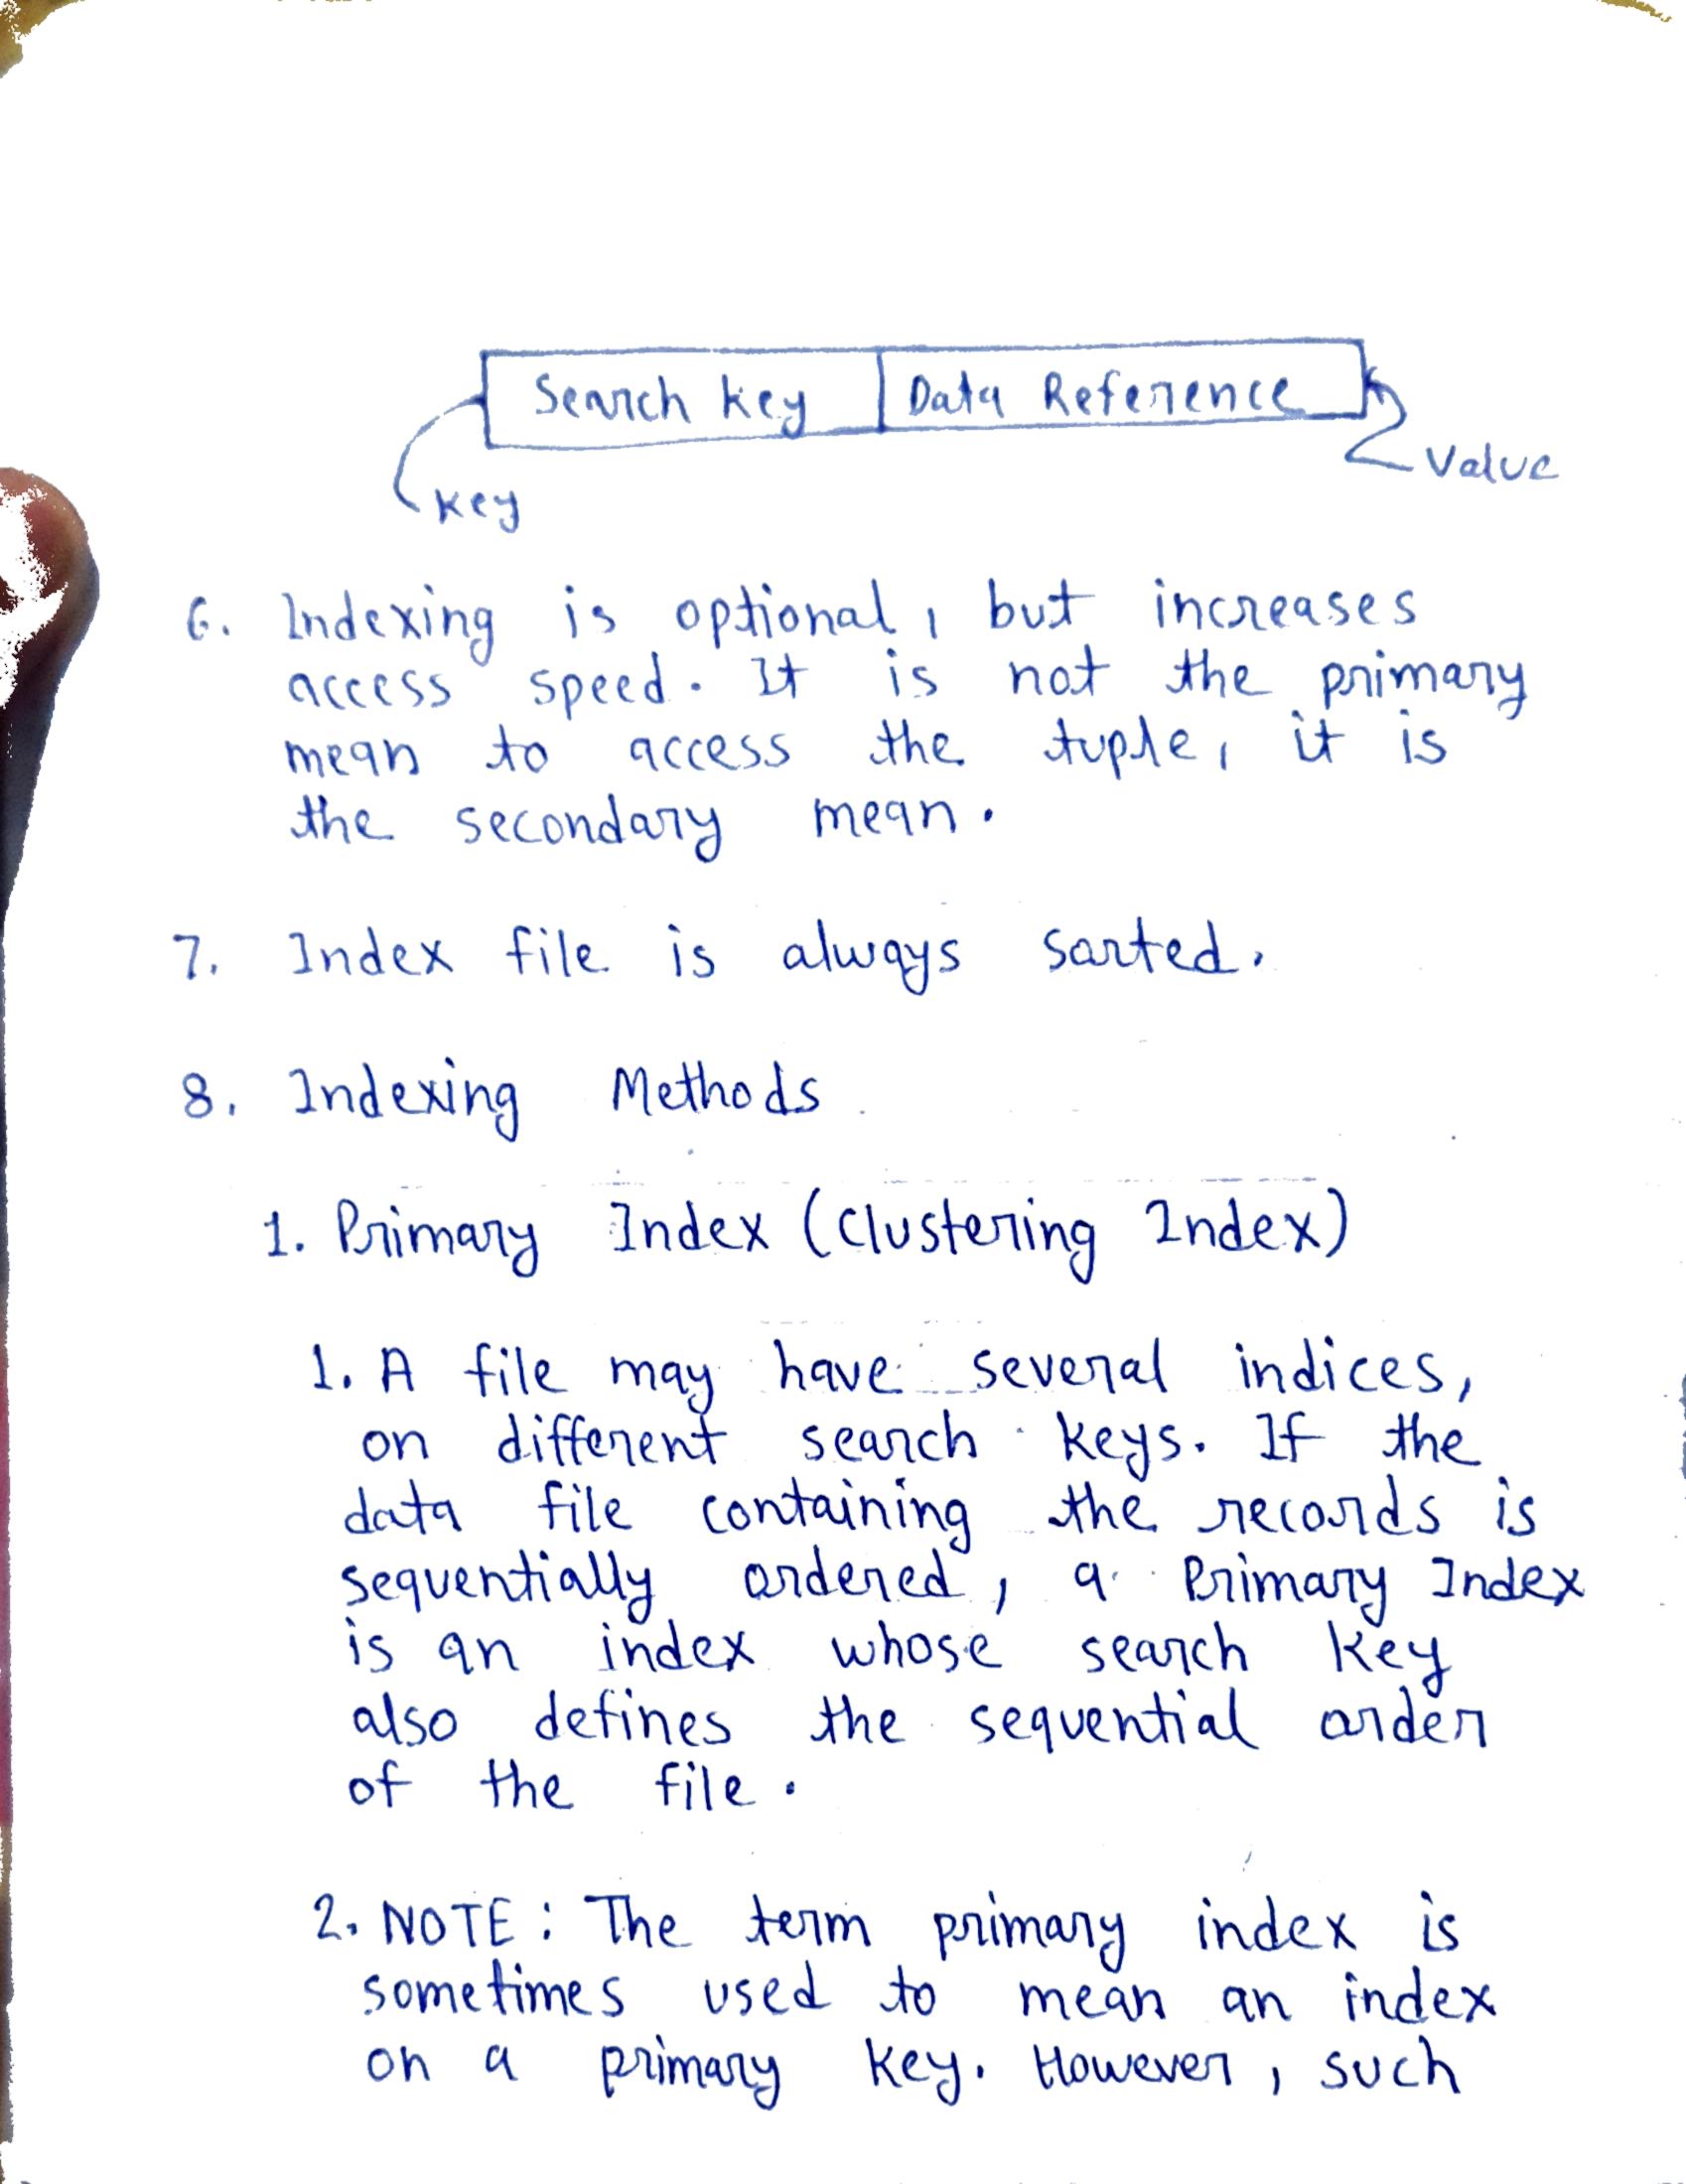 Search key | Data Reference
Value
key
6. Indexing is optional, but increases
access speed. It is not the primary
mean to access the tuple, it is
the secondary mean.
7. Index file is always sorted.
8. Indexing Methods
1. Primary Index (Clustering Index)
1. A file may have several indices,
on different search keys. If the
data file containing the records is
sequentially ordered, a Primary Index
is an index whose search key
also defines the sequential order
of the file.
2. NOTE: The term primary index is
sometimes used to mean an index
on a primary key. However, such